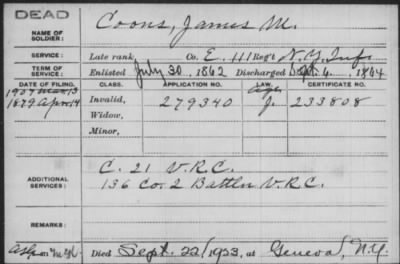 DEAD
NAME OF SOLDIER: Coons, James M.
SERVICE: Late rank Co. E. 111 Reg't N.Y. Inf.
TERM OF SERVICE: Enlisted July 30, 1862 Discharged Sept. 4, 1864
DATE OF FILING. CLASS. APPLICATION NO. LAW. CERTIFICATE NO.
1907 Mar 13
1879 Apr 14 Invalid, 279340 J. 233808
Widow,
Minor,
ADDITIONAL SERVICES: C. 21 V.R.C.
136 Co. 2 Battln V.R.C.
REMARKS:
Died Sept. 22, 1933, at Geneva, N.Y.